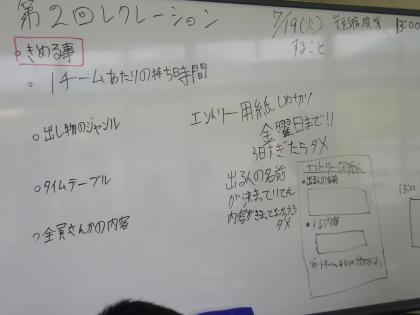 第2回レクレーション
7/19(火) 短縮授業 13:00
すること
きめる事
・1チームあたりの持ち時間
エントリー用紙しめ切り
金曜日まで!!
3日すぎたらダメ
・出し物のジャンル
・タイムテーブル
出る人の名前
が決まっていても
内容が決まってなかったら
ダメ
・全員さんかの内容
エントリー用紙
・出る人の名前
・する内容
13:00